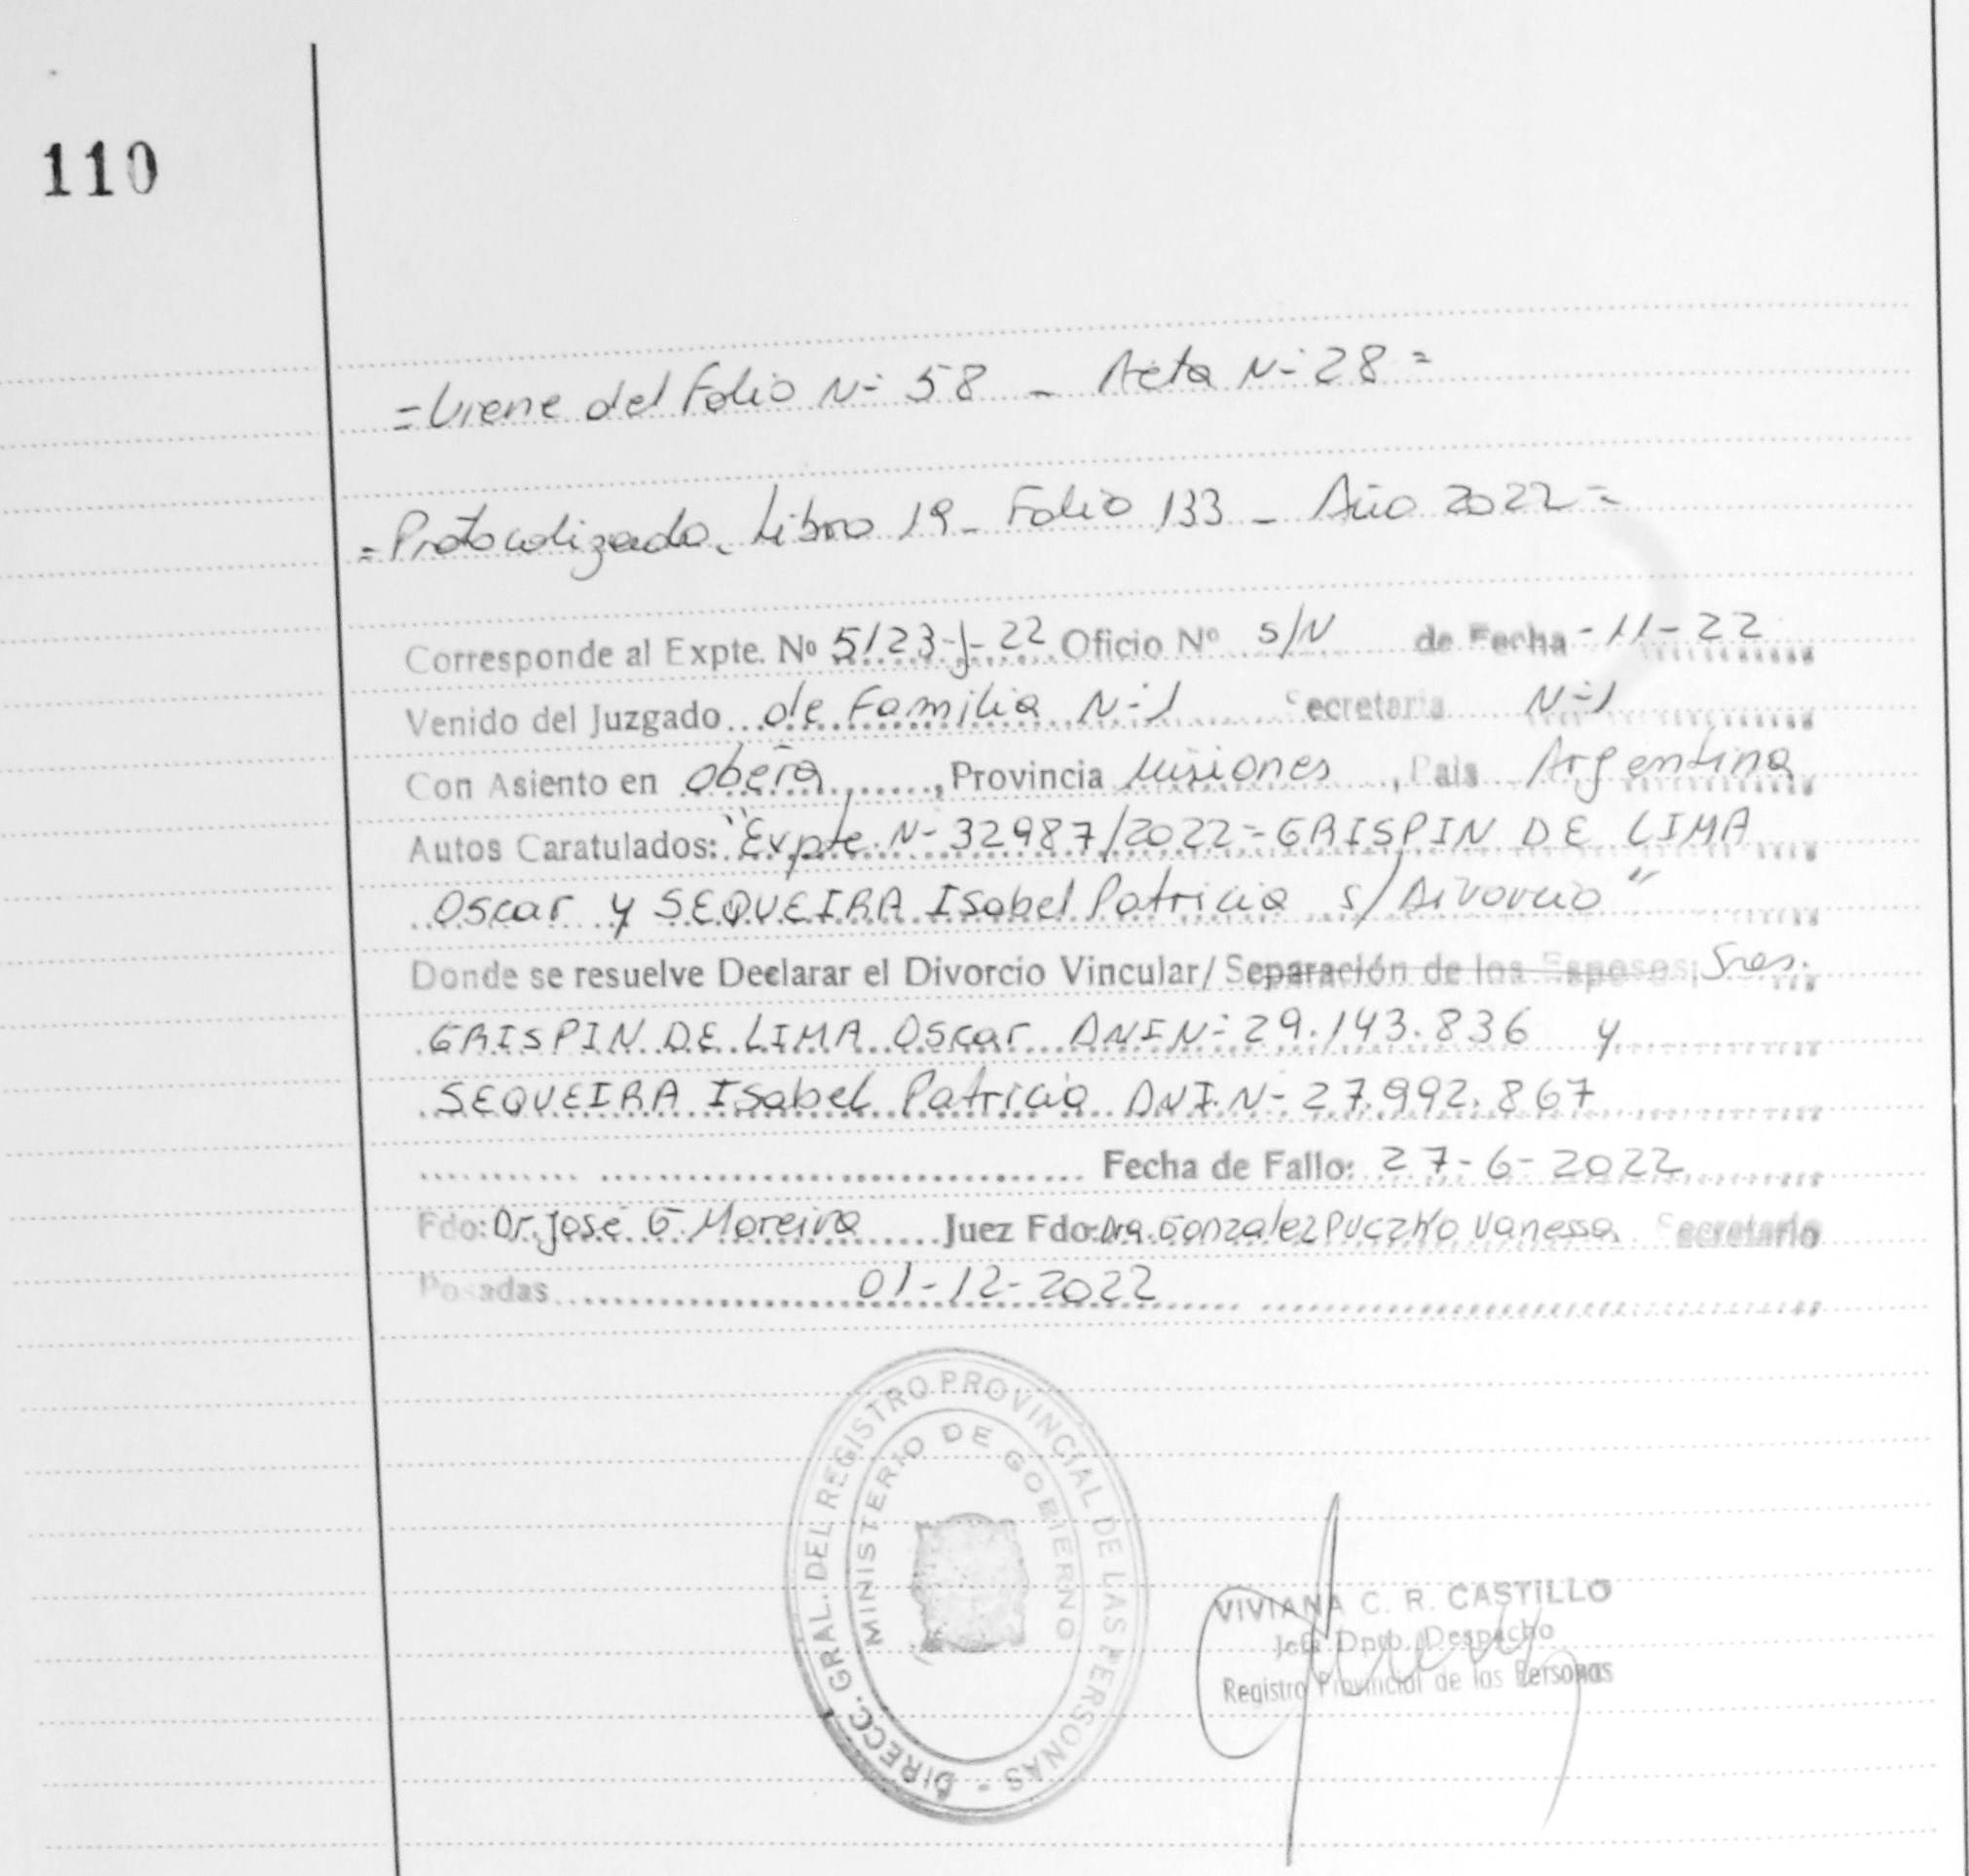 110
=Viene del Folio N- 58 - Acta N- 28=
=Protocolizado. Libro 19- Folio 133 - Año 2022=
Corresponde al Expte. Nº 5123-J-22 Oficio Nº s/N de Fecha -11-22
Venido del Juzgado de Familia N-1 Secretaria N-1
Con Asiento en Oberá, Provincia Misiones, Pais Argentina
Autos Caratulados: "Expte N- 32987/2022- GRISPIN DE LIMA
Oscar y SEQUEIRA Isabel Patricia s/Divorcio"
Donde se resuelve Declarar el Divorcio Vincular/ Separación de los Esposos; Sres.
GRISPIN DE LIMA Oscar DNI N- 29.143.836 y
SEQUEIRA Isabel Patricia DNI N- 27.992.867
Fecha de Fallo: 27-6-2022
Fdo: Dr. José G. Moreira Juez Fdo: Dra. Gonzalez Puczko Vanessa. Secretario
Posadas 01-12-2022
DIRECC. GRAL. DEL REGISTRO PROVINCIAL DE LAS PERSONAS -
MINISTERIO DE GOBIERNO
VIVIANA C. R. CASTILLO
Jefa Dpto. Despacho
Registro Provincial de las Personas